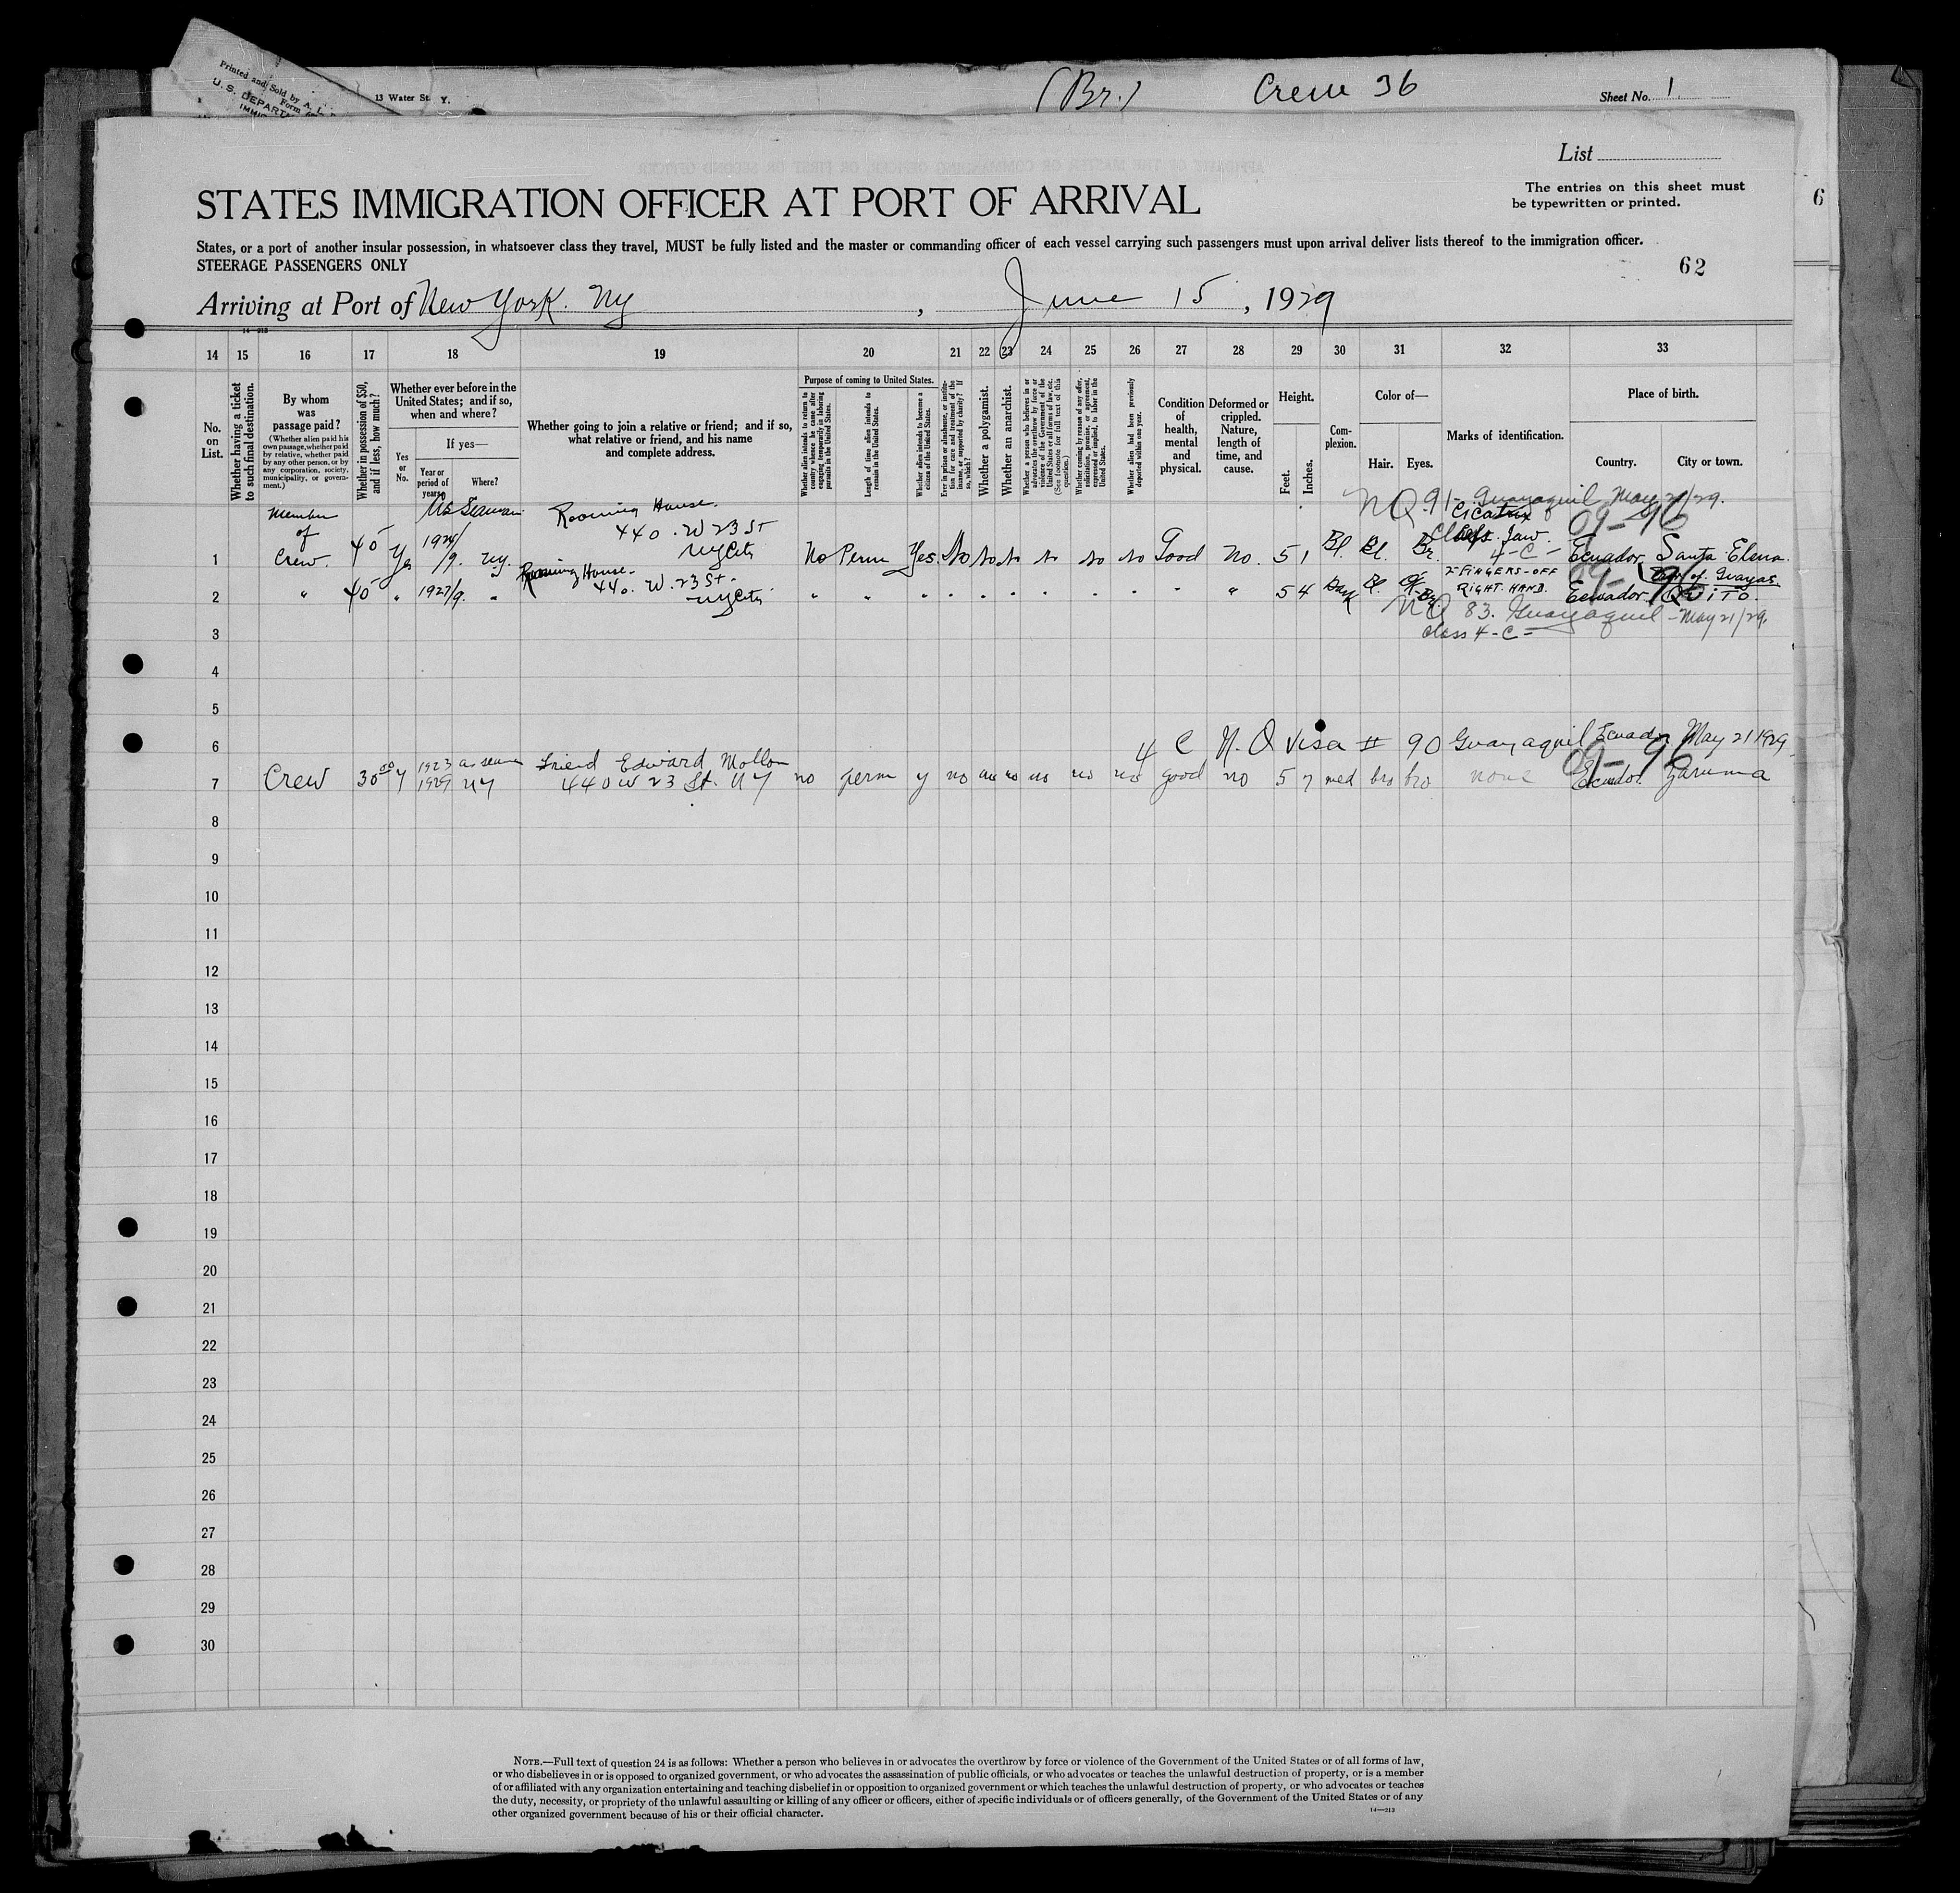 Printed and Sold by A.
Form
U. S. DEPART
13 Water St. Y.
(Br.)
Crew 36
Sheet No. 1
List
STATES IMMIGRATION OFFICER AT PORT OF ARRIVAL
The entries on this sheet must
be typewritten or printed.
6
States, or a port of another insular possession, in whatsoever class they travel, MUST be fully listed and the master or commanding officer of each vessel carrying such passengers must upon arrival deliver lists thereof to the immigration officer.
STEERAGE PASSENGERS ONLY
62
Arriving at Port of New York. Ny, June 15, 1929
14—213
14 15 16 17 18 19 20 21 22 23 24 25 26 27 28 29 30 31 32 33
No. on List.
Whether having a ticket to such final destination.
By whom was passage paid?
(Whether alien paid his own passage, whether paid by relative, whether paid by any other person, or by any corporation, society, municipality, or government.)
Whether in possession of $50, and if less, how much?
Whether ever before in the United States; and if so, when and where?
If yes—
Yes or No.
Year or period of years.
Where?
Whether going to join a relative or friend; and if so, what relative or friend, and his name and complete address.
Purpose of coming to United States.
Whether alien intends to return to country whence he came after engaging temporarily in laboring pursuits in the United States.
Length of time alien intends to remain in the United States.
Whether alien intends to become a citizen of the United States.
Ever in prison or almshouse, or institution for care and treatment of the insane, or supported by charity? If so, which?
Whether a polygamist.
Whether an anarchist.
Whether a person who believes in or advocates the overthrow by force or violence of the Government of the United States or all forms of law, etc. (See footnote for full text of this question.)
Whether coming by reason of any offer, solicitation, promise, or agreement, expressed or implied, to labor in the United States.
Whether alien had been previously deported within one year.
Condition of health, mental and physical.
Deformed or crippled. Nature, length of time, and cause.
Height.
Feet.
Inches.
Complexion.
Color of—
Hair.
Eyes.
Marks of identification.
Place of birth.
Country.
City or town.
NQ. 91- Guayaquil May 21/29.
1 Member of Crew. 40 Yes 1924/9. ny. Seaman Rooming House. 440. W 23 St NyCity No Perm Yes. No No No No No No Good No. 5 1 Bl. Bl. Br. Cicatrix Jaw. 4-C- Ecuador Santa Elena.
09-96
2 " 40 " 1927/9. " Rooming House. 440. W. 23 St. NyCity " " " " " " " " " " " 5 4 Dark Bl. Br. 2-FINGERS-OFF RIGHT. HAND. Ecuador. QUITO.
of Guayas.
NQ 83. Guayaquil - May 21/29.
3 Class 4-C-
4
5
6 4 C N. Q Visa # 90 Guayaquil Ecuador May 21 1929
09-96
7 Crew 30 00 y 1923 1929 as seaman NY Friend Edward Mollon 440 W 23 St. NY no perm y no no no no no no good no 5 7 med bro bro none Ecuador. Zaruma
8
9
10
11
12
13
14
15
16
17
18
19
20
21
22
23
24
25
26
27
28
29
30
NOTE.—Full text of question 24 is as follows: Whether a person who believes in or advocates the overthrow by force or violence of the Government of the United States or of all forms of law,
or who disbelieves in or is opposed to organized government, or who advocates the assassination of public officials, or who advocates or teaches the unlawful destruction of property, or is a member
of or affiliated with any organization entertaining and teaching disbelief in or opposition to organized government or which teaches the unlawful destruction of property, or who advocates or teaches
the duty, necessity, or propriety of the unlawful assaulting or killing of any officer or officers, either of specific individuals or of officers generally, of the Government of the United States or of any
other organized government because of his or their official character.
14—213